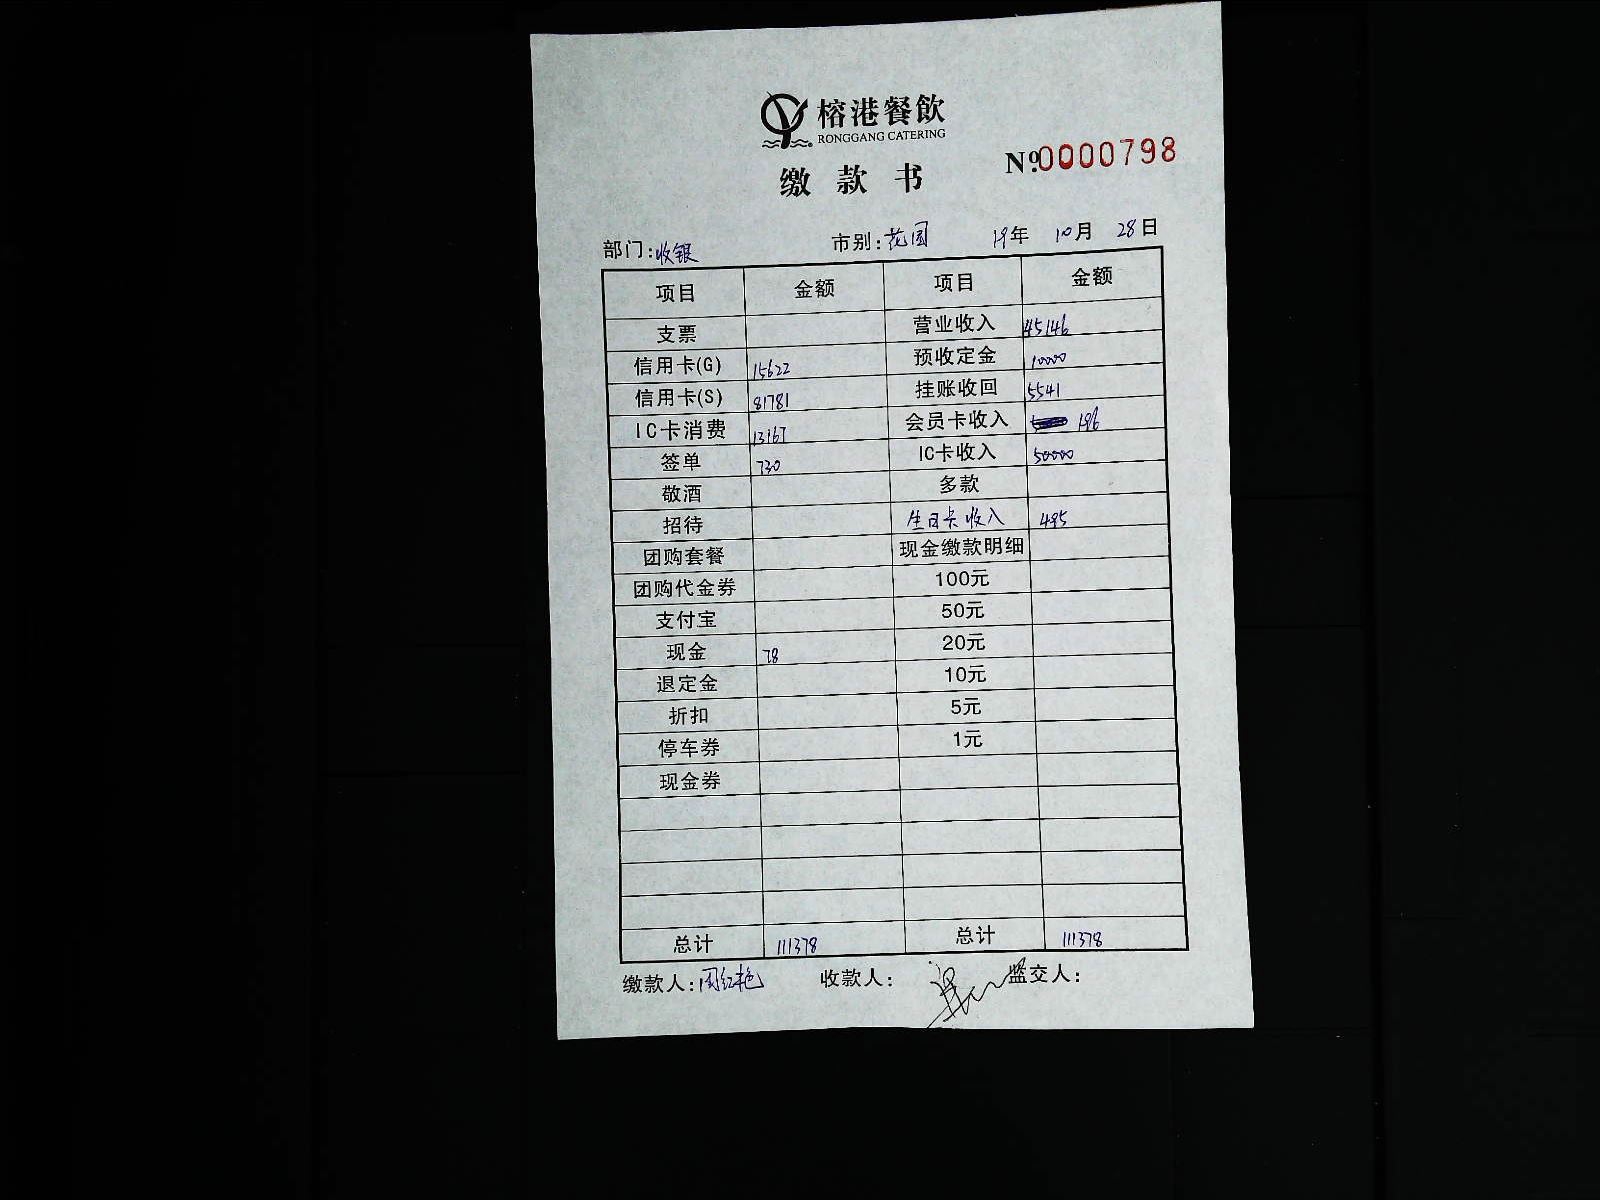 榕港餐飲
RONGGANG CATERING
缴款书
Nº0000798
部门:收银 市别:花园 19年 10月 28日
项目 金额 项目 金额
支票 营业收入 45146
信用卡(G) 15622 预收定金 10000
信用卡(S) 81781 挂账收回 5541
IC卡消费 13167 会员卡收入 196
签单 730 IC卡收入 50000
敬酒 多款
招待 生日卡收入 495
团购套餐 现金缴款明细
团购代金券 100元
支付宝 50元
现金 78 20元
退定金 10元
折扣 5元
停车券 1元
现金券
总计 111378 总计 111378
缴款人:周红艳 收款人: 监交人: